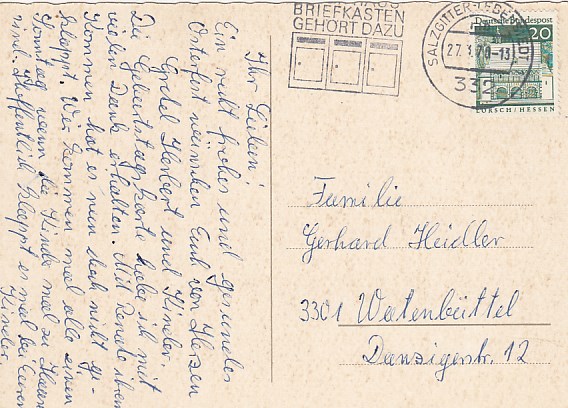 BRIEFKÄSTEN
GEHÖRT DAZU
SALZGITTER-LEBE
27.3.70-13
332
Deutsche Bundespost
20
LORSCH/HESSEN
Ihr Lieben!
Ein recht frohes und gesundes
Osterfest wünschen Euch von Herzen
Gretel Herbert und Kinder.
Die Geburtstag Karte habe ich mit
vielen Dank erhalten. Mit Renate ihren
Kommen hat es nun doch nicht ge-
klappt. Wir kommen mal alle einen
Sonntag wenn die Kinder mal zu Hause
sind. Hoffentlich klappt es mal bei Euren
Kinder.
Familie
Gerhard Heidler
3301 Watenbüttel
Danzigerstr. 12